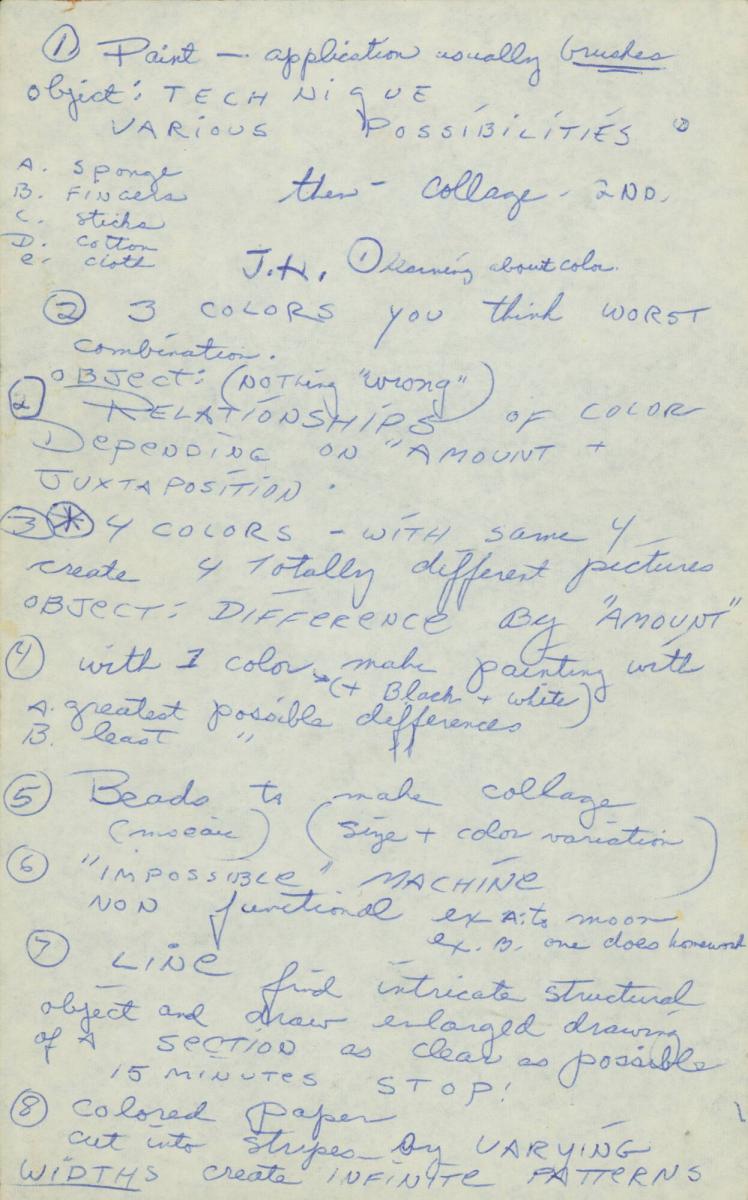 ① Paint — application usually brushes
object: TECHNIQUE
VARIOUS POSSIBILITIES
A. Sponge
B. FINGERS
C. sticks
D. cotton
e. cloth
then - collage - 2ND.
J.H. ① Learning about color.
② 3 COLORS you think WORST
combination.
OBJECT: (NOTHING "wrong")
② RELATIONSHIPS OF COLOR
DEPENDING ON "AMOUNT +
JUXTAPOSITION.
③ * 4 COLORS - WITH same 4
create 4 Totally different pictures
OBJECT: DIFFERENCE By "AMOUNT"
④ with 1 color make painting with
(+ Black + white)
A. greatest possible differences
B. least " "
⑤ Beads to make collage
(mosaic) (size + color variation)
⑥ "IMPOSSIBLE" MACHINE
NON functional ex A: to moon
ex. B. one does homework
⑦ LINE
find intricate structural
object and draw enlarged drawing
of A SECTION as clear as possible
15 MINUTES STOP!
⑧ colored paper
cut into stripes - By VARYING
WIDTHS create INFINITE PATTERNS